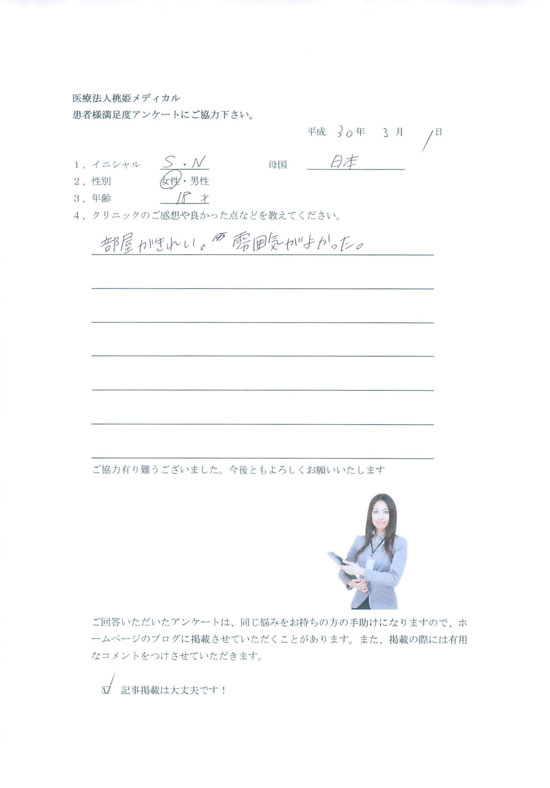 医療法人桃姫メディカル
患者様満足度アンケートにご協力下さい。
平成 30年 3月 1日
1、イニシャル S・N 母国 日本
2、性別 女性・男性
3、年齢 18才
4、クリニックのご感想や良かった点などを教えてください。
部屋がきれい。雰囲気がよかった。
ご協力有り難うございました。今後ともよろしくお願いいたします
ご回答いただいたアンケートは、同じ悩みをお持ちの方の手助けになりますので、ホ
ームページのブログに掲載させていただくことがあります。また、掲載の際には有用
なコメントをつけさせていただきます。
☑ 記事掲載は大丈夫です！